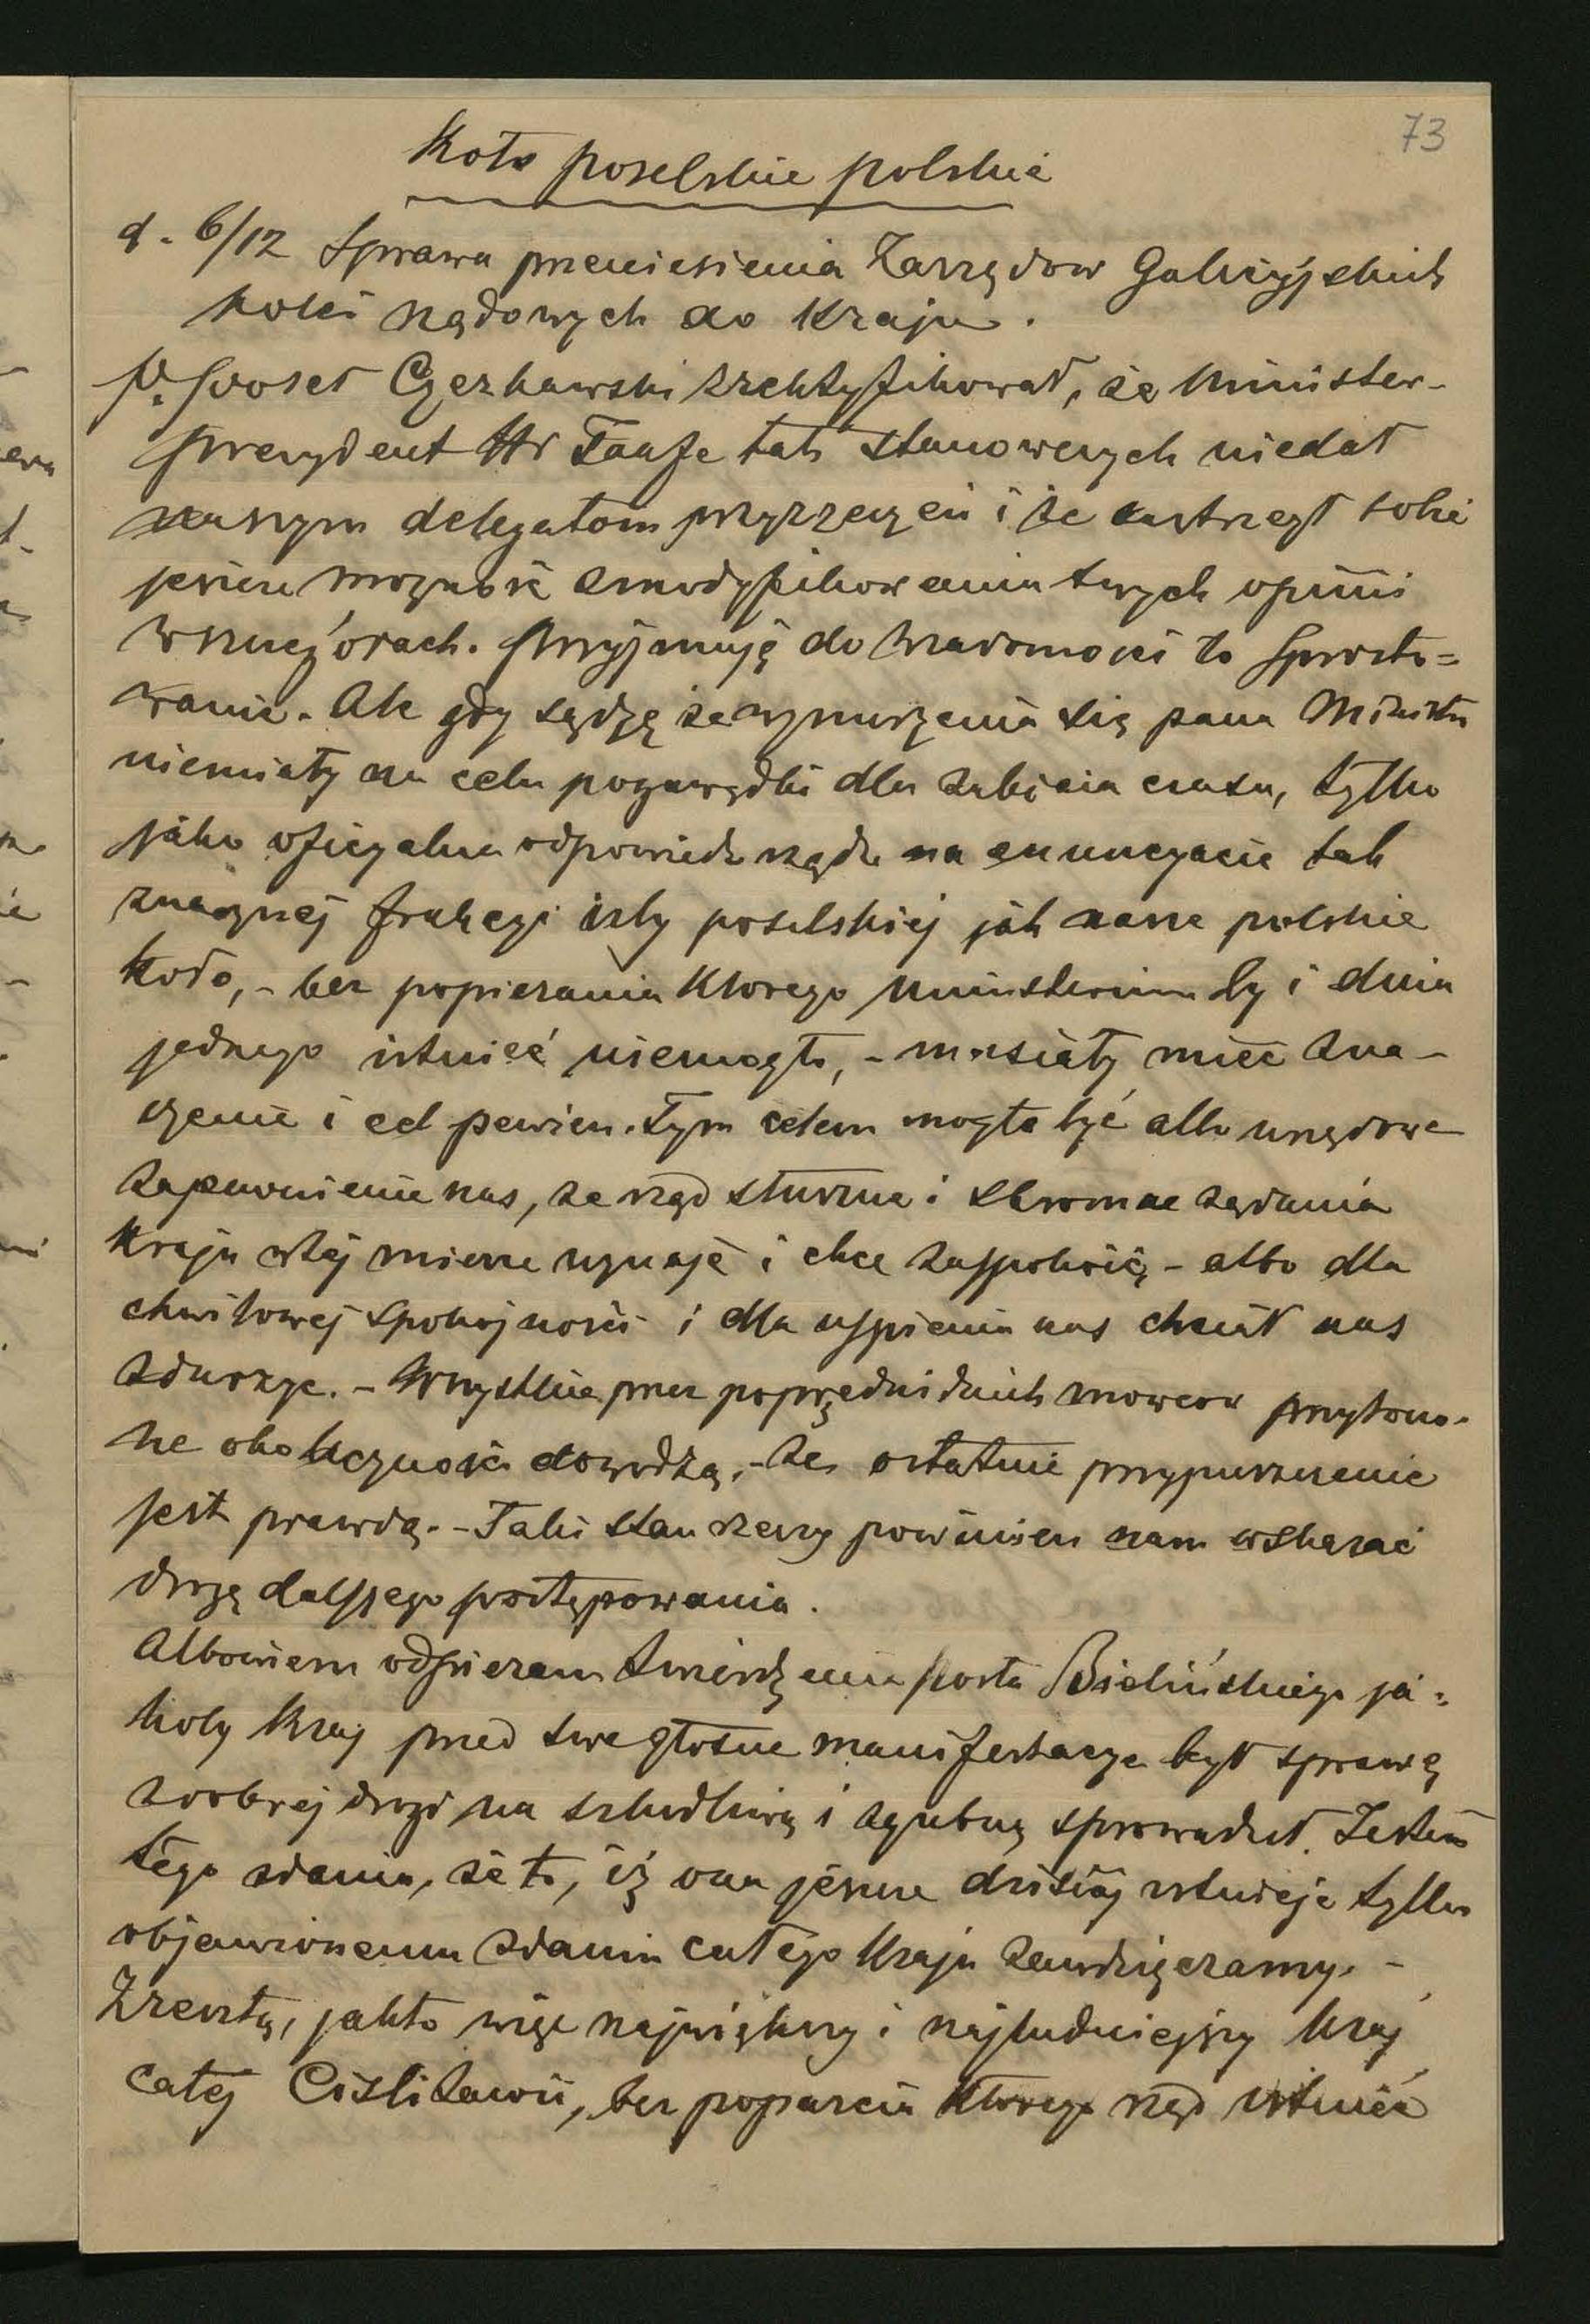 73
Koło poselskie polskie
d. 6/12 Sprawa przeniesienia Zarządow Galicyjskich
kolei rządowych do Kraju.
P. Poseł Czerkawski zrektyfikował, że Minister-
prezydent Hr Taafe tak stanowczych niedał
naszym delegatom przyrzeczeń i że zastrzegł sobie
jescze możność zmodyfikowania swych opinii
w szczegołach. Przyjmuję do wiadomości to sprosto=
wanie. Ale gdy sądzę że wynurzenia się pana Ministra
niemiały na celu pogawędki dla zabicia czasu, tylko
jako oficyalna odpowiedz rządu na enuncyacie tak
znacznej frakcyi izby poselskiej jak nasze polskie
koło, - bez popierania ktorego ministerium by i dnia
jednego istnieć niemogło, - musiały mieć zna-
czenie i cel pewien. Tym celem mogło być albo urzędowe
zapewnienie nas, że rząd słuszne i skromne żądania
Kraju w tej mierze uznaje i chce zaspokoić, - albo dla
chwilowej spokojności i dla uspienia nas chciał nas
zdurzyc. - Wszystkie przez poprzednich mowcow przytoczo-
ne okoliczności dowodzą, - że ostatnie przypuszczenie
jest prawdą. - Taki stan rzeczy powinien nam wskazać
drogę dalszego postępowania.
Albowiem odpieram twierdzenia posła Bielińskiego ja=
koby Kraj przed swe głosne manifestacye był sprawę
z dobrej drogi na szkodliwą i zgubną sprowadził. Jestem
tego zdania, że to, iż ona jescze dzisiaj istnieje tylko
objawionemu zdaniu całego Kraju zawdzięczamy. -
Zresztą, jakto więc największy i najludniejszy Kraj
całej Cislitawii, bez poparcia ktorego rząd istnieć